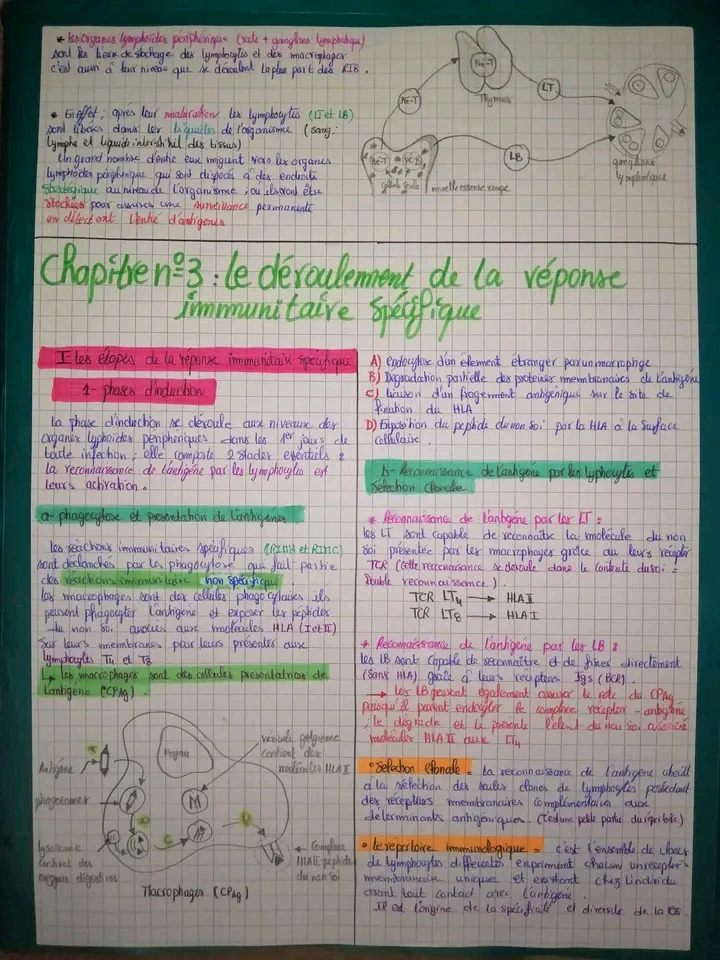 * Les organes lymphoïdes périphérique (rate + ganglions lymphatique)
sont les lieux de stockage des lymphocytes et des macrophages
c'est aussi à leur niveau que se déroulent la plus part des RIS.
* En effet, après leur maturation les lymphocytes (LT et LB)
sont libérés dans les liquides de l'organisme (sang,
lymphe et liquide interstitiel des tissus)
Un grand nombre d'entre eux migrent vers les organes
lymphoïdes périphérique qui sont disposés à des endroits
stratégique au niveau de l'organisme, où ils vont être
stockés pour assurer une surveillance permanente
en détectant l'entré d'antigènes
Pré-T
Thymus
LT
Pré-T
LB
cellule souche
moelle osseuse rouge
ganglions
lymphatique
Chapitre n°3 : le déroulement de la réponse
immunitaire spécifique
I- les étapes de la réponse immunitaire spécifique
1- phases d'induction
La phase d'induction se déroule aux niveaux des
organes lyphoïdes périphériques dans les 1er jours de
toute infection ; elle comporte 2 stades essentiels :
la reconnaissance de l'antigène par les lymphocytes et
leurs activation.
a- phagocytose et présentation de l'antigènes
les réactions immunitaires spécifiques (RIMH et RIMC)
sont déclanchés par la phagocytose qui fait partie
des réactions immunitaire non spécifique
les macrophages sont des cellules phagocytaires ils
peuvent phagocyter l'antigène et exposer les peptides
du non soi associés aux molécules HLA (I et II)
sur leurs membranes pour leurs présenter aux
lymphocytes T4 et T8
↳ les macrophages sont des cellules présentatrices de
l'antigène (CPAg).
Antigène
phagosome
lysosome
contient des
enzymes digestives
Noyau
M
A
B
C
D
vésicule golgienne
contient des
molécules HLA II
Complexe
HLA II-peptide
du non soi
Macrophages (CPAg)
A) endocytose d'un élement étranger par un macrophage
B) Dégradation partielle des protéines membranaires de l'antigène
C) liaison d'un fragement antigénique sur le site de
fixation du HLA
D) Exposition du peptide du non soi par la HLA à la surface
cellulaire.
b- Reconnaissance de l'antigène par les lyphocytes et
sélection clonale
* Reconnaissance de l'antigène par les LT :
les LT sont capable de reconnaitre la molécule du non
soi présentée par les macrophages grâce au leurs récepter
TCR (cette reconnaissance se déroule dans le contexte du soi =
double reconnaissance).
TCR LT4 → HLA II
TCR LT8 → HLA I
* Reconnaissance de l'antigène par les LB :
les LB sont capable de reconnaître et de fixer directement
(sans HLA) grâce à leurs récepteurs Igs (BCR).
→ les LB peuvent également assurer le role du CPAg
puisqu'il peuvent endocyter le complexe récepteur - antigène
, le dégrade et le présente l'élent du non soi associé
molécules HLA II aux LT4
• Sélection clonale = La reconnaissance de l'antigène aboutit
a la sélection des seules clones de lymphocytes possédant
des récepteurs membranaires complémentaires aux
déterminants antigéniques. (C'est une petite partie du répertoire)
• le répertoire immunologique = c'est l'ensemble de clones
de lymphocytes différents exprimant chacun un recepteur
membranaire uniques et existant chez l'individu
avant tout contact avec l'antigène.
Il est l'origine de la spécificité et diversité de la RIS.